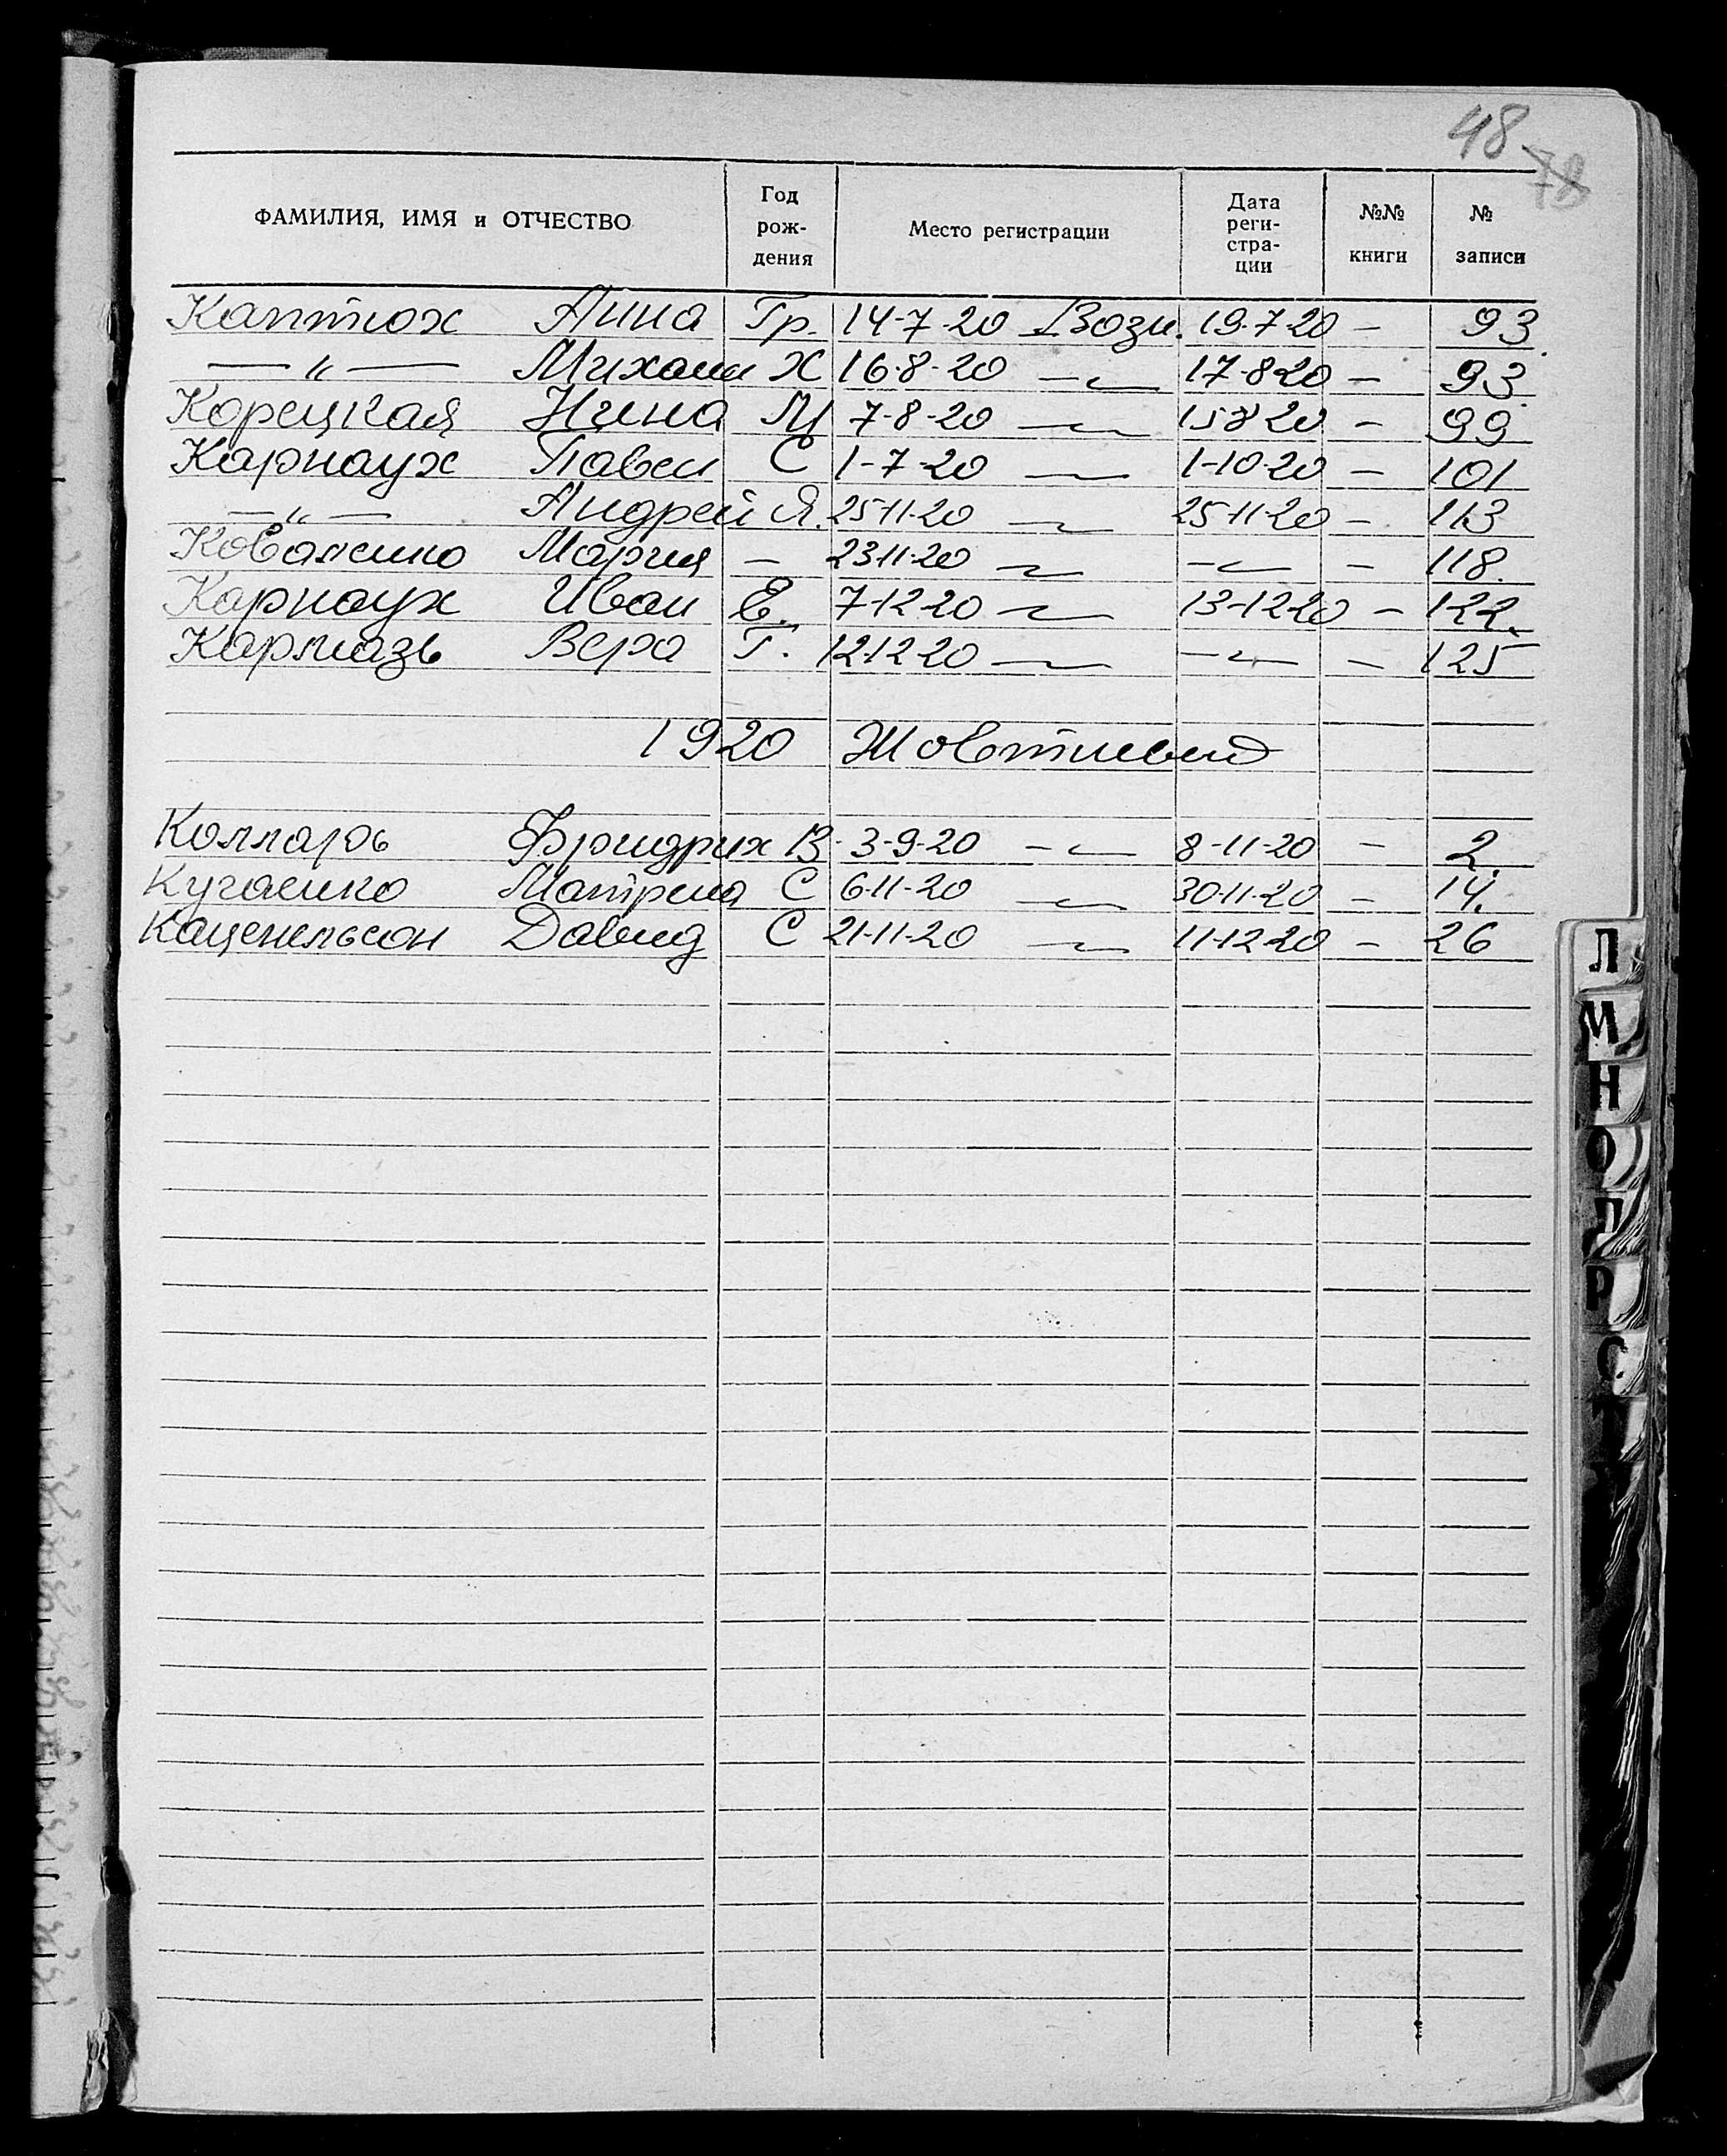 48
78
ФАМИЛИЯ, ИМЯ и ОТЧЕСТВО Год рож- дения Место регистрации Дата реги- стра- ции №№ книги № записи
Каптюх Анна Гр. 14-7-20 Возн. 19-7-20 — 93
—〃— Михаил Х 16-8-20 —〃— 17-8-20 — 93
Корецкая Нина М 7-8-20 —〃— 15-8-20 — 99
Карнаух Павел С 1-7-20 —〃— 1-10-20 — 101
—〃— Андрей Я. 25-11-20 —〃— 25-11-20 — 113
Коваленко Мария — 23-11-20 —〃— —〃— — 118.
Карнаух Иван Е. 7-12-20 —〃— 13-12-20 — 122.
Кармазь Вера Г. 12-12-20 —〃— —〃— — 125
1920 Жовтневый
Колларь Фридрих В. 3-9-20 —〃— 8-11-20 — 2.
Кугаенко Матрена С 6-11-20 —〃— 30-11-20 — 14.
Каценельсон Давид С 21-11-20 —〃— 11-12-20 — 26
Л
М
Н
О
П
Р
С
Т